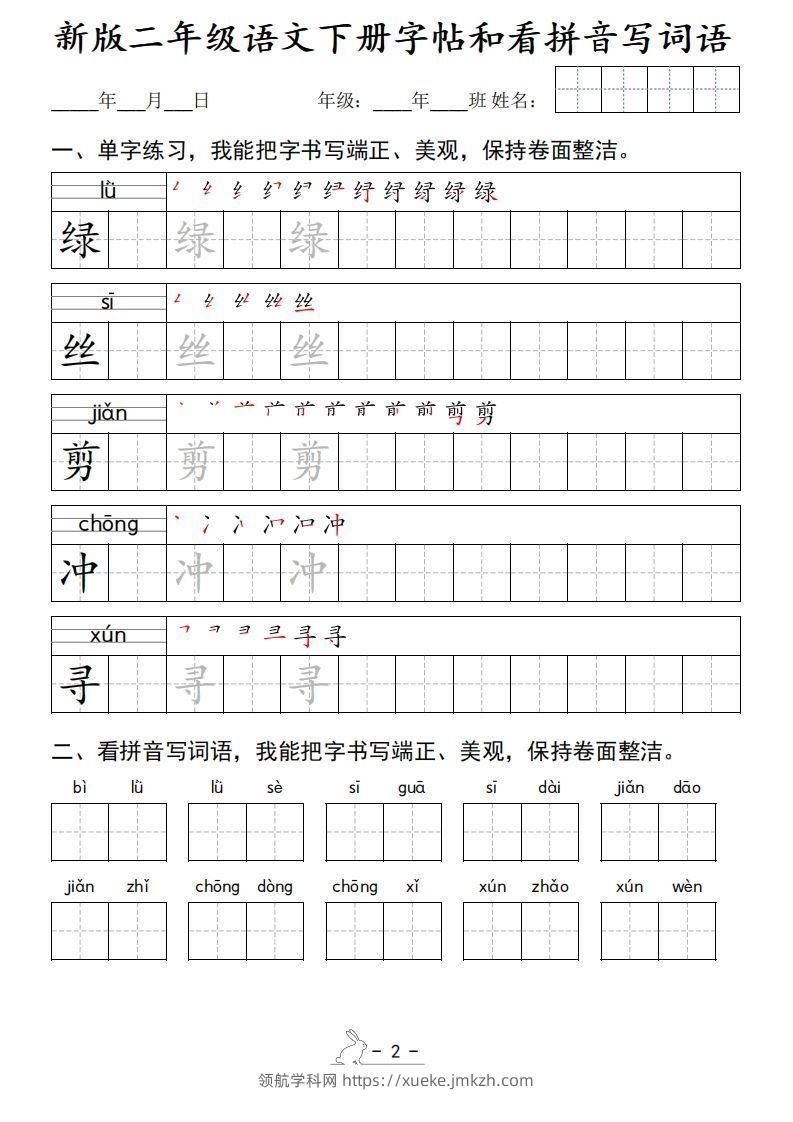 新版二年级语文下册字帖和看拼音写词语
_____年___月___日 年级：____年____班 姓名：
一、单字练习，我能把字书写端正、美观，保持卷面整洁。
lǜ
绿 绿 绿
sī
丝 丝 丝
jiǎn
剪 剪 剪
chōng
冲 冲 冲
xún
寻 寻 寻
二、看拼音写词语，我能把字书写端正、美观，保持卷面整洁。
bì lǜ lǜ sè sī guā sī dài jiǎn dāo
jiǎn zhǐ chōng dòng chōng xǐ xún zhǎo xún wèn
- 2 -
领航学科网 https://xueke.jmkzh.com